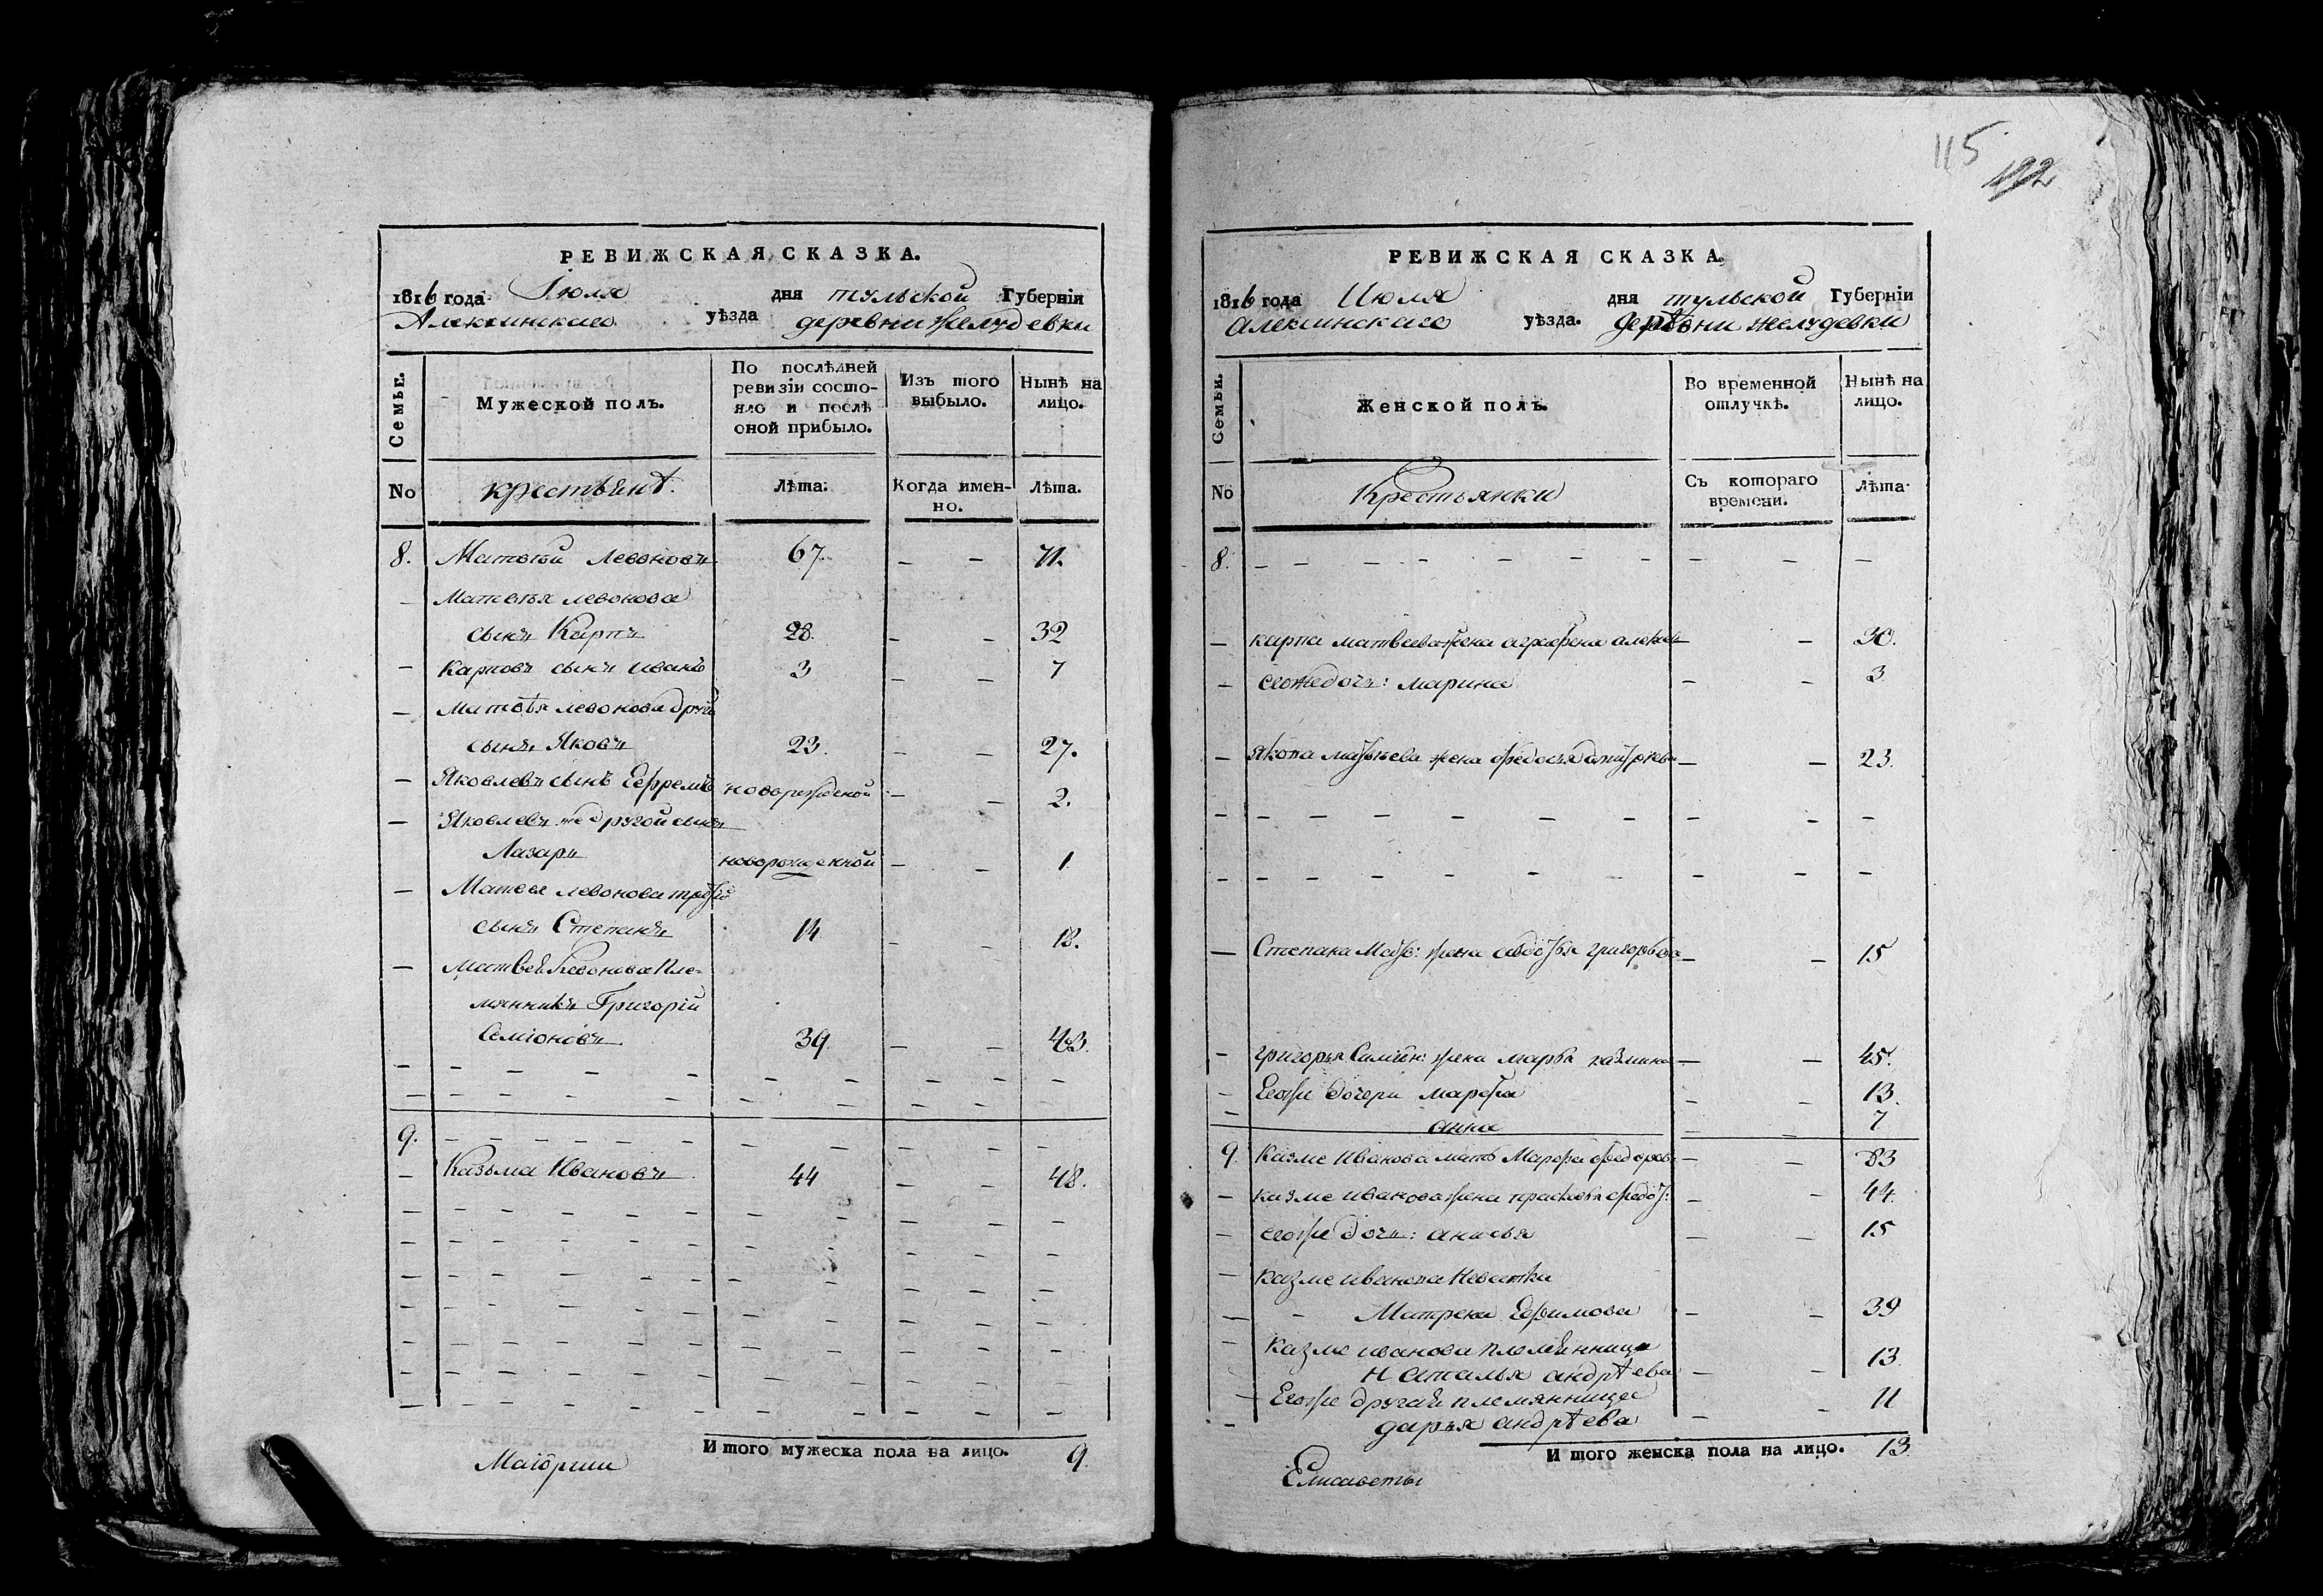 РЕВИЖСКАЯ СКАЗКА.
1816 года Іюля дня тульской Губерніи
Алексинскаго уѣзда деревни желудевки
Семьи.
Мужеской полъ.
По послѣдней ревизіи состояло и послѣ оной прибыло.
Изъ того выбыло.
Нынѣ на лицо.
No крестьянѣ. Лѣта. Когда именно. Лѣта.
8. Матвѣй Левоновъ 67. – – 71.
– Матвѣя левонова
сынъ Карпъ 28. – – 32
– Карповъ сынъ иванъ 3 – – 7
– Матвѣя левонова другой
сынъ Яковъ 23. – – 27.
– Яковлевъ сынъ Ефремъ новорожденой – – 2.
– Яковлевъ же другой сынъ
Лазарь новорожденной – – 1
– Матвея левонова третей
сынъ Степанъ 14 – – 18.
– Матвея Левонова Пле-
мянникъ Григорій
Семіоновъ 39. – – 43.
9.
– Казьма Ивановъ 44 – – 48.
И того мужеска пола на лицо. 9.
Маіорши
115
122
РЕВИЖСКАЯ СКАЗКА.
1816 года Июля дня тульской Губерніи
алексинскаго уѣзда. деревни желудевки
Семьи.
Женской полъ.
Во временной отлучкѣ.
Нынѣ на лицо.
No Крестьянки Съ котораго времени. Лѣта.
8. – – – – – – – – –
– карпа матвеева жена аграфена – – 30.
– Егоже дочь: марина – – 3
– Якова матвеева жена федосья – – 23.
– Степана Матв: жена григорьева – – 15
– григорья Симион: жена марья казмина – – 45.
– Егоже дочери марфа – – 13.
– анна – – 7
9. Казме Иванова мать Марфа федорова – – 83
– казме иванова жена прасковья федот: – – 44.
– егоже дочь: анисья – – 15
– казме иванова Невестка
– – Матрена Ефимова – – 39
Казме иванова племянница
Наталья андрѣева – – 13.
– Егоже другая племянница
– дарья андрѣева – – 11
И того женска пола на лицо. 13.
Елисаветы